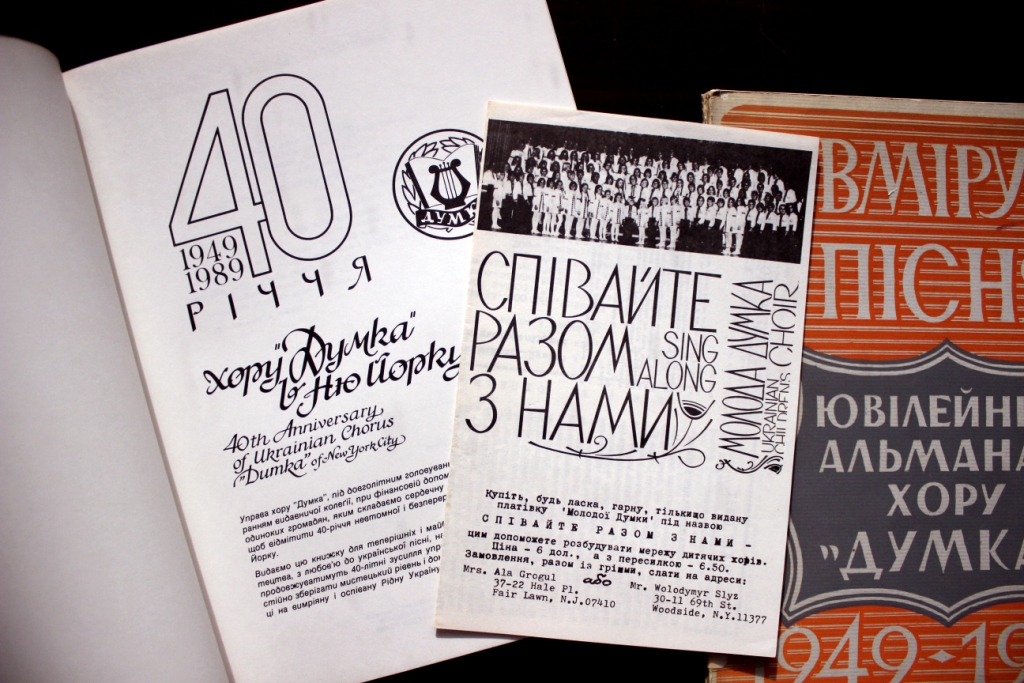 40
1949
1989
РІЧЧЯ
ДУМК
хору "Думка"
в Ню Йорку
40th Anniversary
of Ukrainian Chorus
"Dumka" of New York City
Управа хору "Думка", під довголітним головуван
ранням видавничої колегії, при фінансовій допом
одиноких громадян, яким складаємо сердечну
щоб відмітити 40-річчя невтомної і безперер
Йорку.
Видаємо цю книжку для теперішніх і май
тецтва, з любов'ю до української пісні, на
продовжуватимуть 40-літні зусилля упр
стійно зберігати мистецький рівень і дон
ці на вимріяну і оспівану Рідну Україну
СПІВАЙТЕ
РАЗОМ
З НАМИ
SING
ALONG
МОЛОДА ДУМКА
UKRAINIAN
CHILDRENS CHOIR
Купіть, будь ласка, гарну, тількищо видану
платівку 'Молодої Думки' під назвою
СПІВАЙТЕ РАЗОМ З НАМИ -
цим допоможете розбудувати мережу дитячих хорів.
Ціна - 6 дол., а з пересилкою - 6.50.
Замовлення, разом із грішми, слати на адреси:
Mrs. Ala Grogul або Mr. Wolodymyr Slyz
37-22 Hale Pl. 30-11 69th St.
Fair Lawn, N.J.07410 Woodside, N.Y.11377
В МІРУ
ПІСН
ЮВІЛЕЙНИ
АЛЬМАНА
ХОРУ
„ДУМКА
1949·19